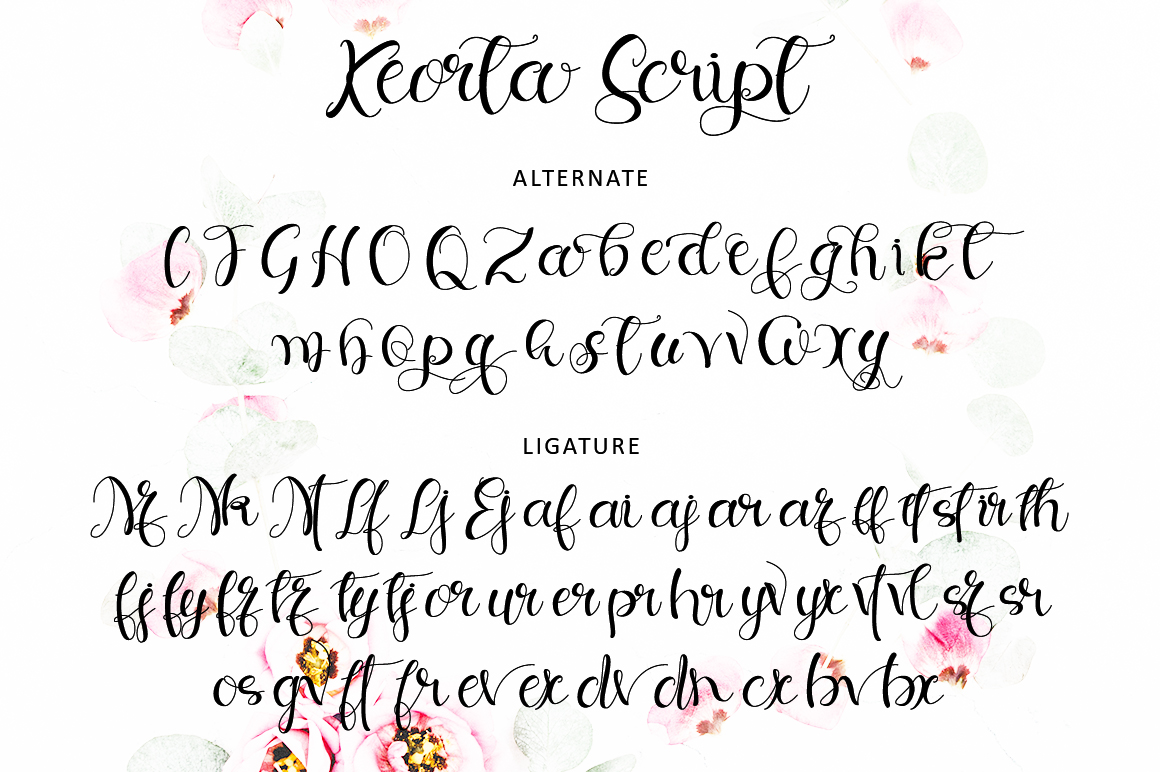 Keorta Script
ALTERNATE
C F G H O Q Z a b c d e f g h i k t
m h o p q h s t u v v w x y
LIGATURE
Nz Nk Nt Lf Lj Ej af ai aj ar az ff tf st ir th
fj fy fz tz ty tj or ur er pr hr yv yx vt vl sz sr
os gv ft fr ev ex dv dn cx bv bx